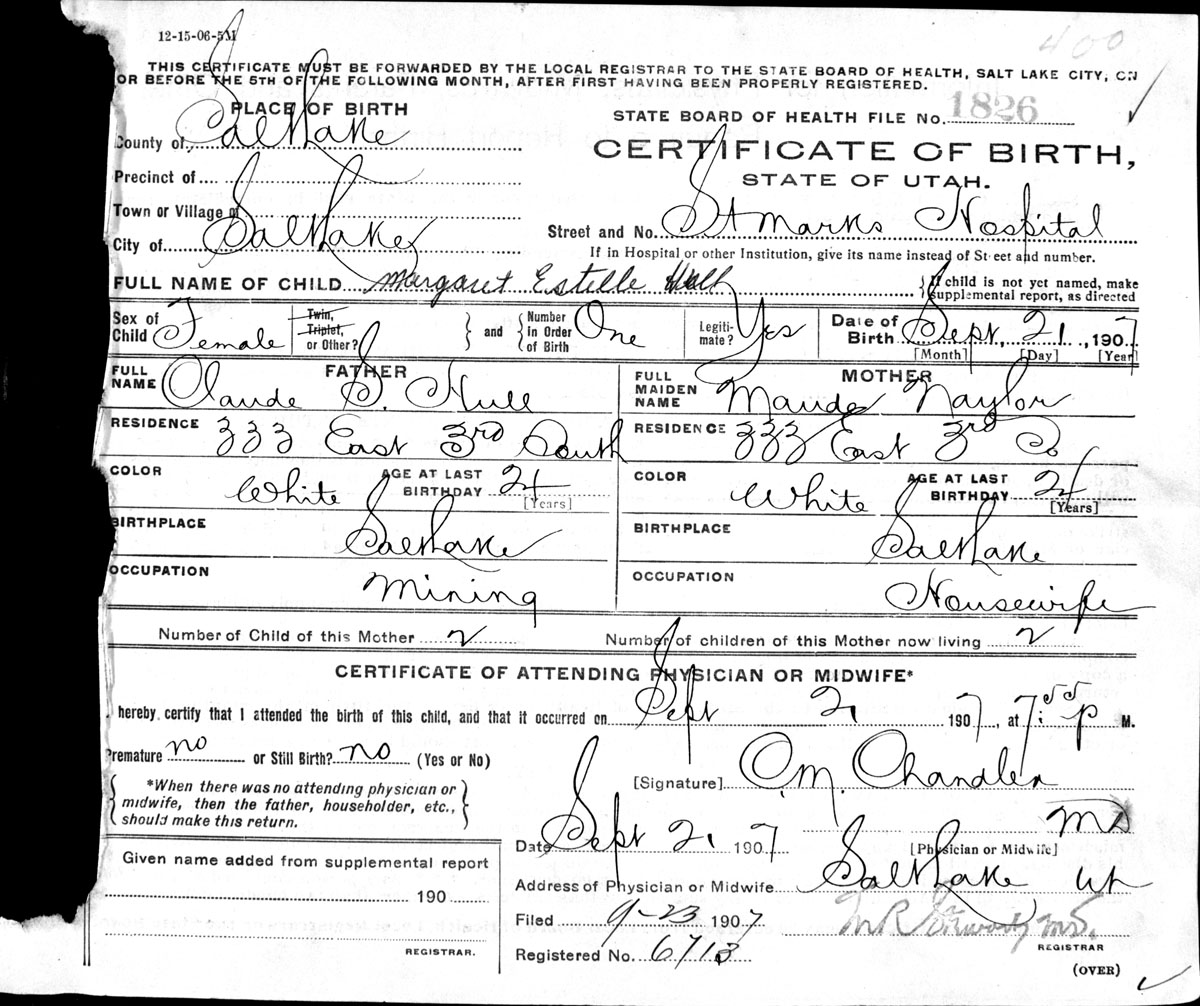 12-15-06-5M
400
THIS CERTIFICATE MUST BE FORWARDED BY THE LOCAL REGISTRAR TO THE STATE BOARD OF HEALTH, SALT LAKE CITY, ON
OR BEFORE THE 5TH OF THE FOLLOWING MONTH, AFTER FIRST HAVING BEEN PROPERLY REGISTERED.
PLACE OF BIRTH
STATE BOARD OF HEALTH FILE No. 1826
County of Salt Lake
CERTIFICATE OF BIRTH,
STATE OF UTAH.
Precinct of
Town or Village of
City of Salt Lake
Street and No. St Marks Hospital
If in Hospital or other Institution, give its name instead of Street and number.
FULL NAME OF CHILD Margaret Estelle Hull
{If child is not yet named, make supplemental report, as directed
Sex of Child Female
Twin, Triplet, or Other?
and Number in Order of Birth One
Legitimate? Yes
Date of Birth Sept, 21, 1907
[Month] [Day] [Year]
FATHER
FULL NAME Claude S. Hull
MOTHER
FULL MAIDEN NAME Maude Naylor
RESIDENCE 333 East 3rd South
RESIDENCE 333 East 3rd So
COLOR White
AGE AT LAST BIRTHDAY 24
[Years]
COLOR White
AGE AT LAST BIRTHDAY 24
[Years]
BIRTHPLACE Salt Lake
BIRTHPLACE Salt Lake
OCCUPATION Mining
OCCUPATION Housewife
Number of Child of this Mother 2
Number of children of this Mother now living 2
CERTIFICATE OF ATTENDING PHYSICIAN OR MIDWIFE*
I hereby certify that I attended the birth of this child, and that it occurred on Sept 21 1907, at 7:55 P M.
Premature no or Still Birth? no (Yes or No)
{*When there was no attending physician or
midwife, then the father, householder, etc.,
should make this return.}
[Signature] O.M. Chandler
MD
[Physician or Midwife]
Date Sept 21 1907
Given name added from supplemental report
190
REGISTRAR.
Address of Physician or Midwife Salt Lake Ut
Filed 9-23 1907
Registered No. 6713
REGISTRAR
(OVER)